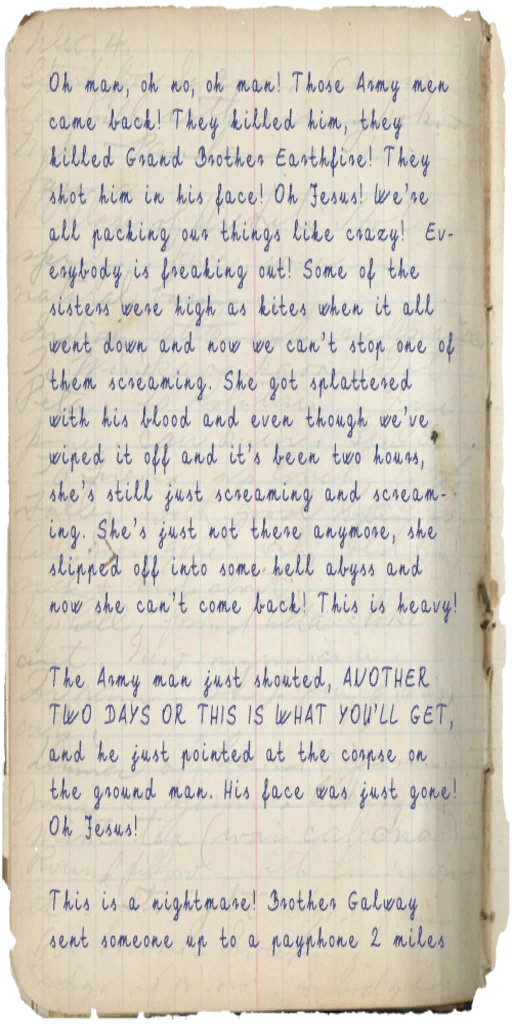 Oh man, oh no, oh man! Those Army men
came back! They killed him, they
killed Grand Brother Earthfire! They
shot him in his face! Oh Jesus! We're
all packing our things like crazy! Ev-
erybody is freaking out! Some of the
sisters were high as kites when it all
went down and now we can't stop one of
them screaming. She got splattered
with his blood and even though we've
wiped it off and it's been two hours,
she's still just screaming and scream-
ing. She's just not there anymore, she
slipped off into some hell abyss and
now she can't come back! This is heavy!
The Army man just shouted, ANOTHER
TWO DAYS OR THIS IS WHAT YOU'LL GET,
and he just pointed at the corpse on
the ground man. His face was just gone!
Oh Jesus!
This is a nightmare! Brother Galway
sent someone up to a payphone 2 miles